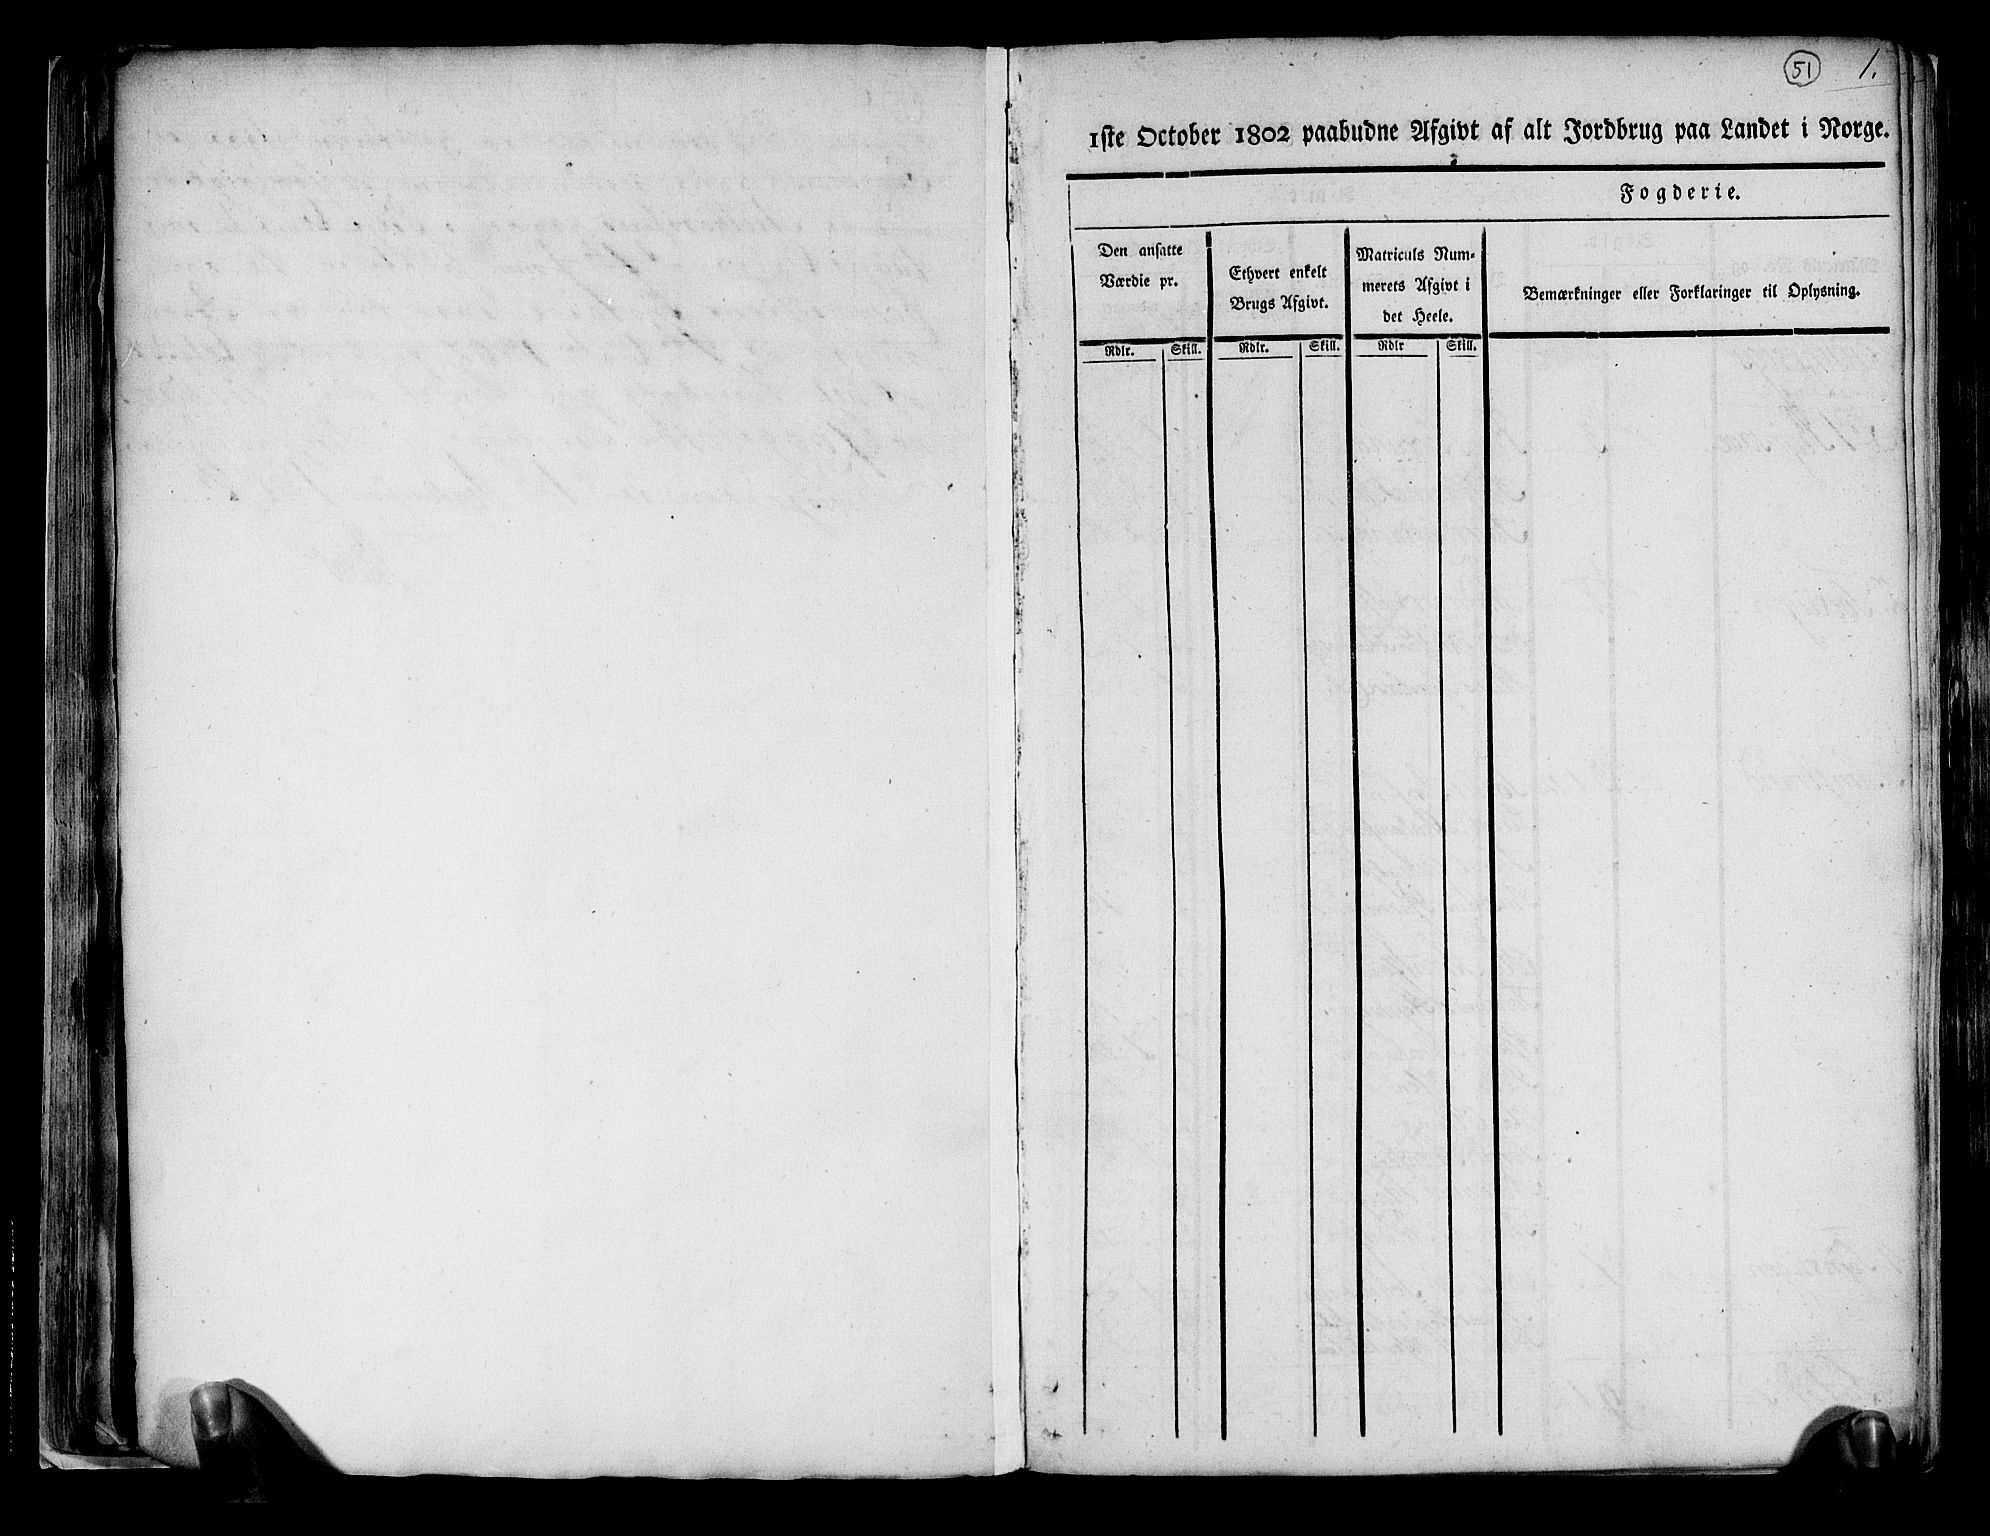 51 1.
1ste October 1802 paabudne Afgivt af alt Jordbrug paa Landet i Norge.
Fogderie.
Den ansatte
Værdie pr.
Ethvert enkelt
Brugs Afgivt.
Matriculs Num-
merets Afgivt i
det Heele.
Bemærkninger eller Forklaringer til Oplysning.
Rdlr. Skill. Rdlr. Skill. Rdlr Skill.